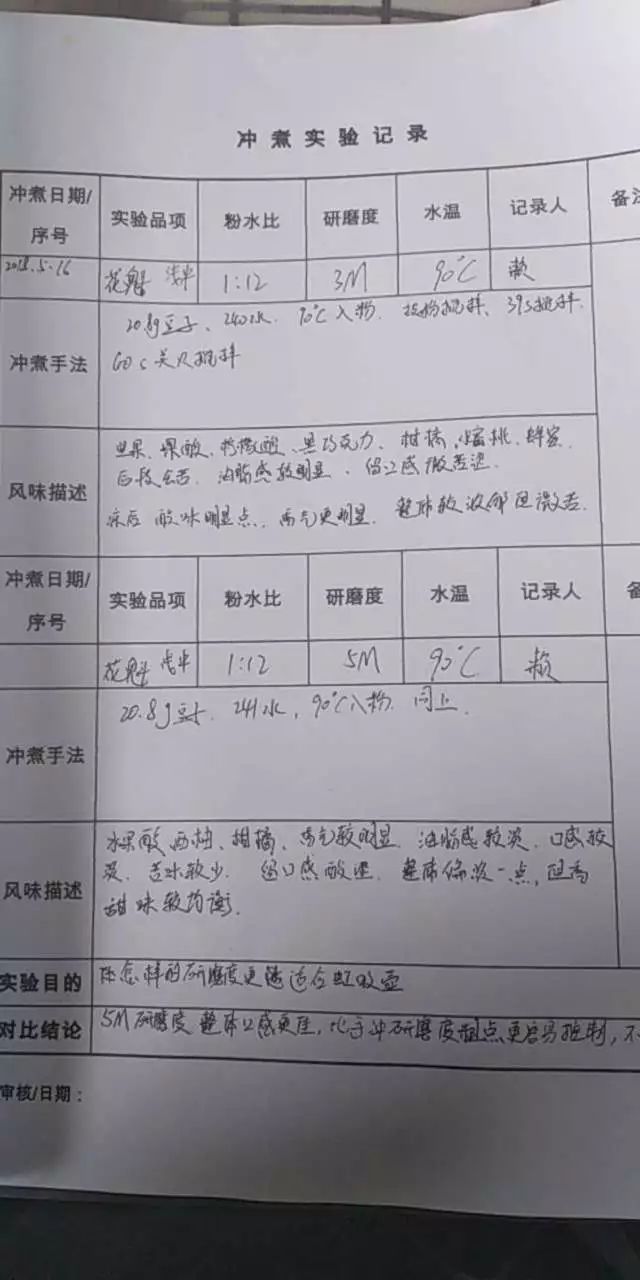 冲煮实验记录
冲煮日期/序号 实验品项 粉水比 研磨度 水温 记录人 备注
2018.5.16 花魁 浅中 1:12 3M 90°C 赖
冲煮手法 20.8g豆子、240水、90°C入粉、投粉搅拌、39s搅拌、
60s关火搅拌
风味描述 坚果、果酸、柠檬酸、黑巧克力、柑橘、蜜桃、蜂蜜、
后段会苦、油脂感较明显、留口感微苦涩、
凉后酸味明显点、香气更明显、整体较浓郁但微苦.
冲煮日期/序号 实验品项 粉水比 研磨度 水温 记录人
花魁 浅中 1:12 5M 90°C 赖
冲煮手法 20.8g豆子、241水、90°C入粉、同上.
风味描述 水果酸 西柚、柑橘、香气较明显 油脂感较淡、口感较
淡、苦味较少、留口感酸涩、整体偏淡一点,但香
甜味较均衡.
实验目的 怎样的研磨度更适合虹吸壶
对比结论 5M研磨度整体口感更佳,比手冲研磨度粗点更容易控制,不
审核/日期: